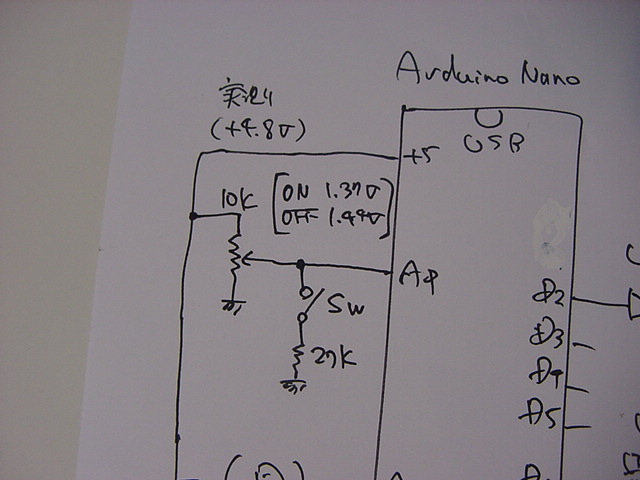 Arduino Nano
実測
(+4.8V)
USB
+5
10K
ON 1.37V
OFF 1.49V
Aφ
SW
27K
D2
D3
D4
D5